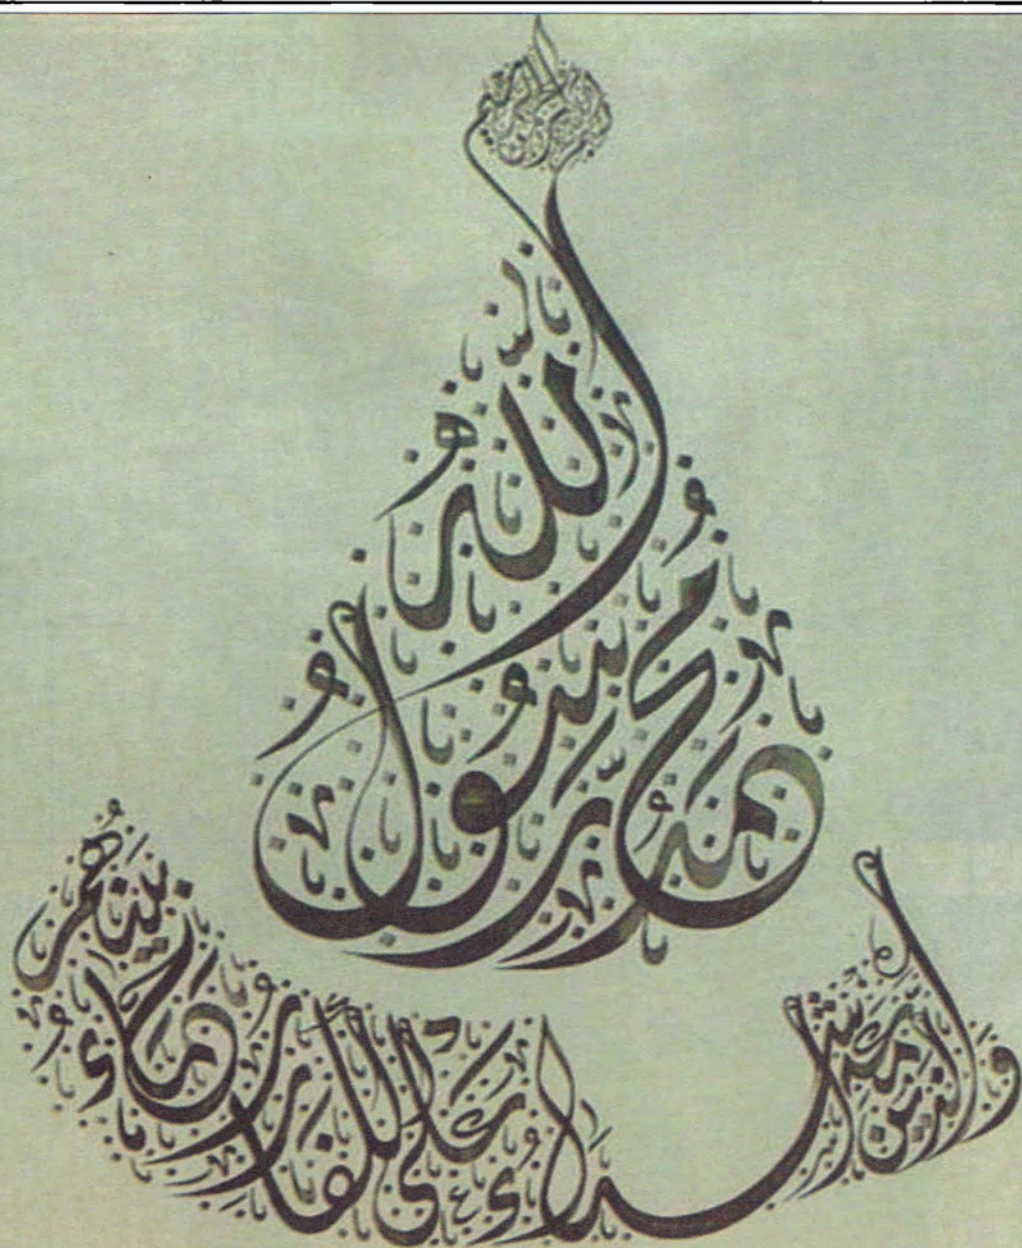 بسم الله الرحمن الرحيم
محمد رسول الله
والذين معه أشداء على الكفار رحماء بينهم